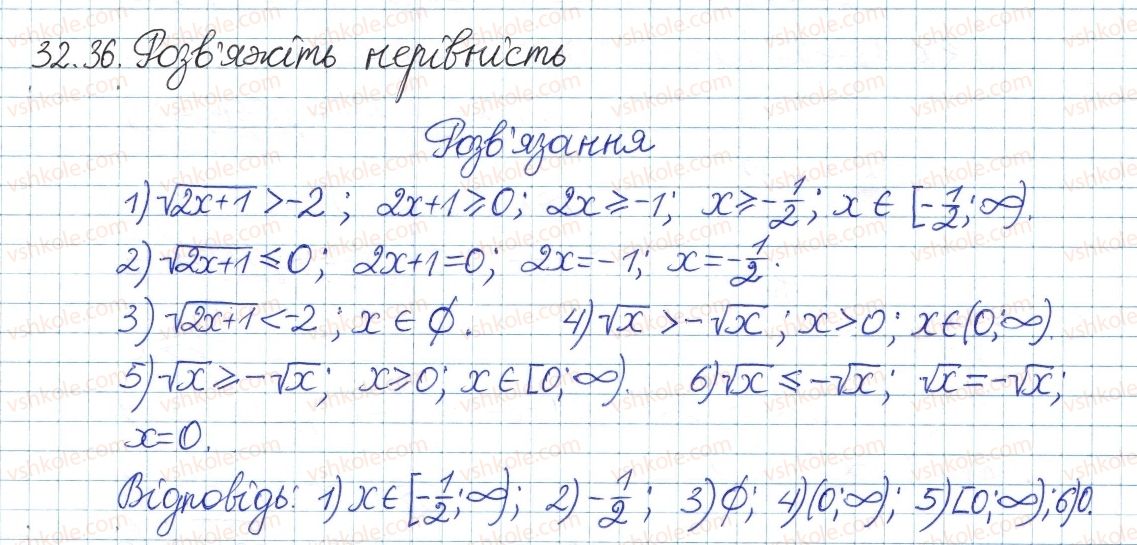 32.36. Розв'яжіть нерівність
Розв'язання
1) √2x+1 > -2 ; 2x+1 ≥ 0; 2x ≥ -1; x ≥ -1/2 ; x ∈ [-1/2 ; ∞).
2) √2x+1 ≤ 0; 2x+1 = 0; 2x = -1; x = -1/2.
3) √2x+1 < -2 ; x ∈ ∅. 4) √x > -√x ; x > 0; x ∈ (0; ∞).
5) √x ≥ -√x; x ≥ 0; x ∈ [0; ∞). 6) √x ≤ -√x; √x = -√x;
x = 0.
Відповідь: 1) x ∈ [-1/2; ∞); 2) -1/2 ; 3) ∅; 4) (0; ∞); 5) [0; ∞); 6) 0.